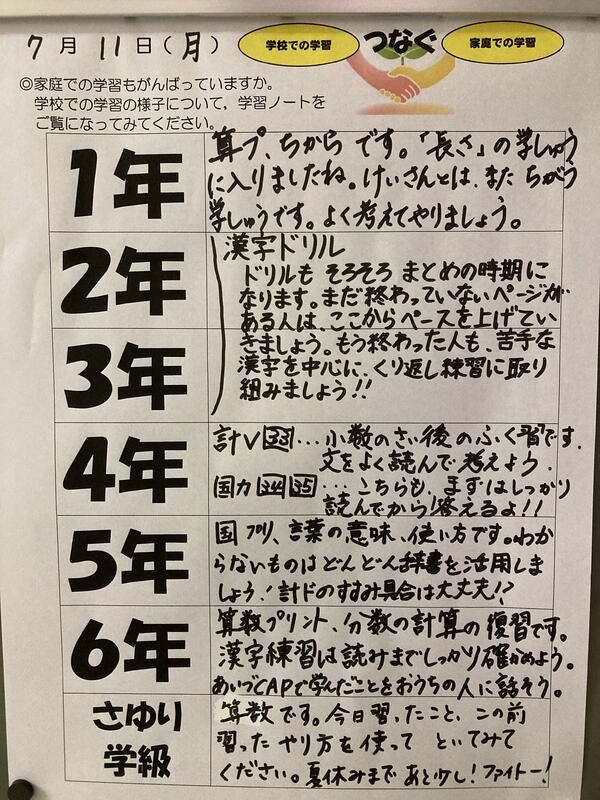 7月11日(月)
学校での学習
つなぐ
家庭での学習
◎家庭での学習もがんばっていますか。
学校での学習の様子について,学習ノートを
ご覧になってみてください。
1年
算プ、ちからです。「長さ」の学しゅう
に入りましたね。けいさんとは、また ちがう
学しゅうです。よく考えてやりましょう。
2年
3年
漢字ドリル
ドリルも そろそろ まとめの時期に
なります。まだ終わっていないページが
ある人は、ここからペースを上げてい
きましょう。もう終わった人も、苦手な
漢字を中心に、くり返し練習に取り
組みましょう!!
4年
計V 33…小数のさい後のふく習です.
文をよく読んで考えよう.
国力 34 35…こちらも、まずはしっかり
読んでから!答えるよ!!
5年
国プリ、言葉の意味、使い方です。わか
らないものはどんどん辞書を活用しま
しょう!計ドのすすみ具合は大丈夫!?
6年
算数プリント、分数の計算の復習です。
漢字練習は読みまでしっかり確かめよう。
あいづCAPで学んだことをおうちの人に話そう。
さゆり
学級
算数です。今日習ったこと、この前
習った やり方を使って といてみて
ください。夏休みまで あと少し!ファイトー!